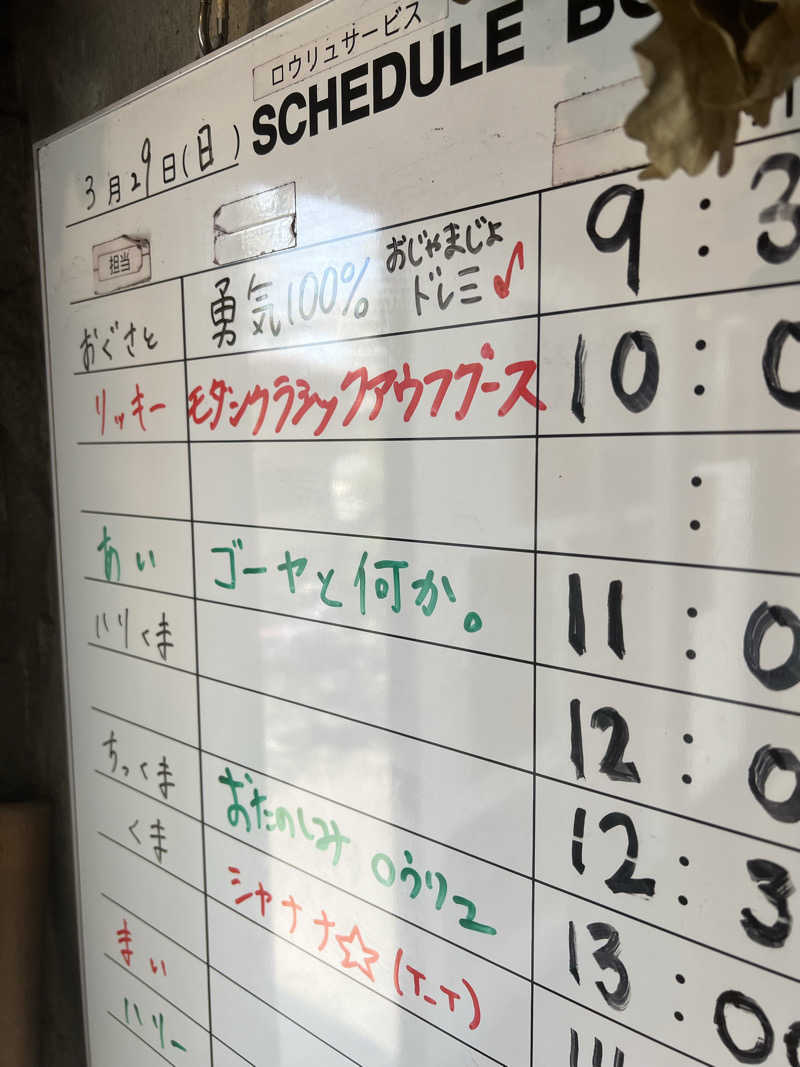 ロウリュサービス
SCHEDULE
3月29日(日)
担当
おぐさと 勇気100% おじゃまじょ 9:3
ドレミ♪
リッキー モダンクラシックアウフグース 10:0
:
あい ゴーヤと何か。 11:0
ハリくま 12:0
ちっくま おたのしみロウリュ 12:3
くま シャナナ☆(T_T) 13:00
まい
ハリー